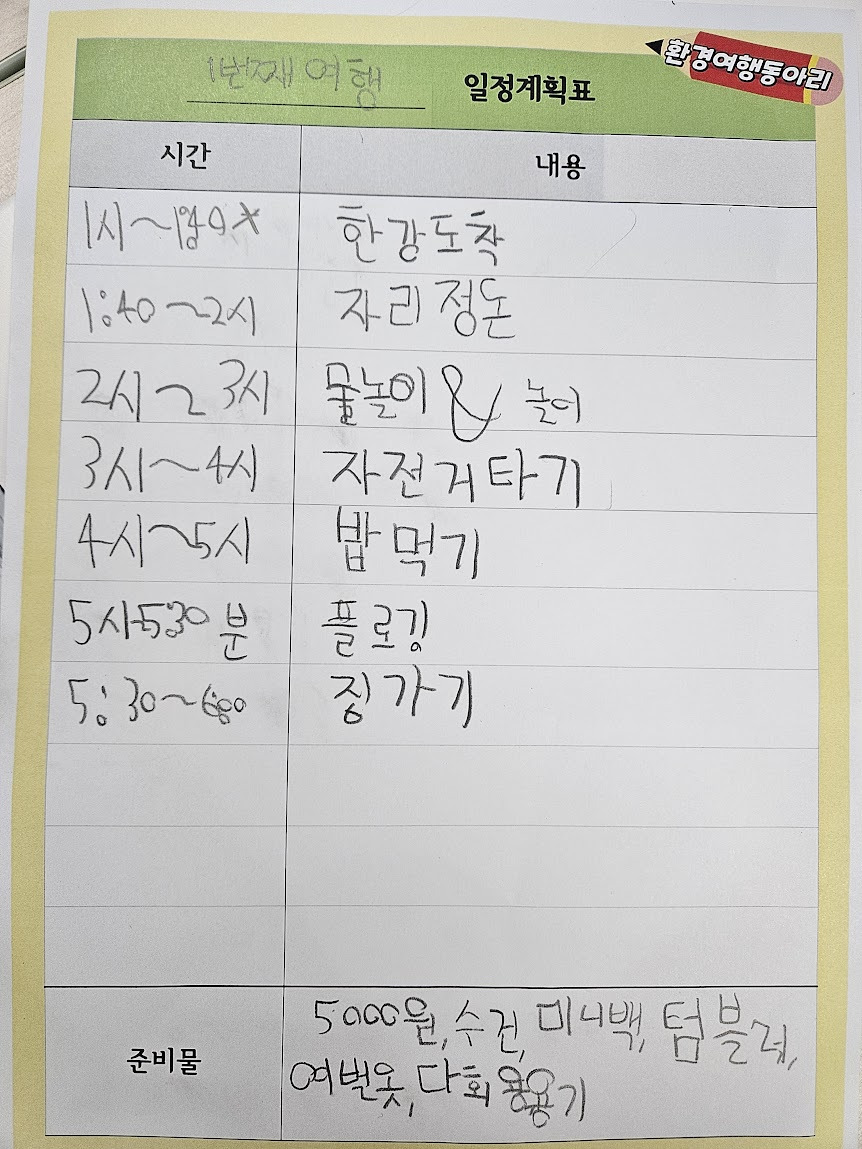 환경여행동아리
1번째 여행 일정계획표
시간 내용
1시~1시40 한강도착
1:40~2시 자리정돈
2시~3시 물놀이 & 놀이
3시~4시 자전거타기
4시~5시 밥먹기
5시~5:30분 플로깅
5:30~6:00 징가기
준비물
5000원, 수건, 미니백, 텀블러,
여벌옷, 다회용용기